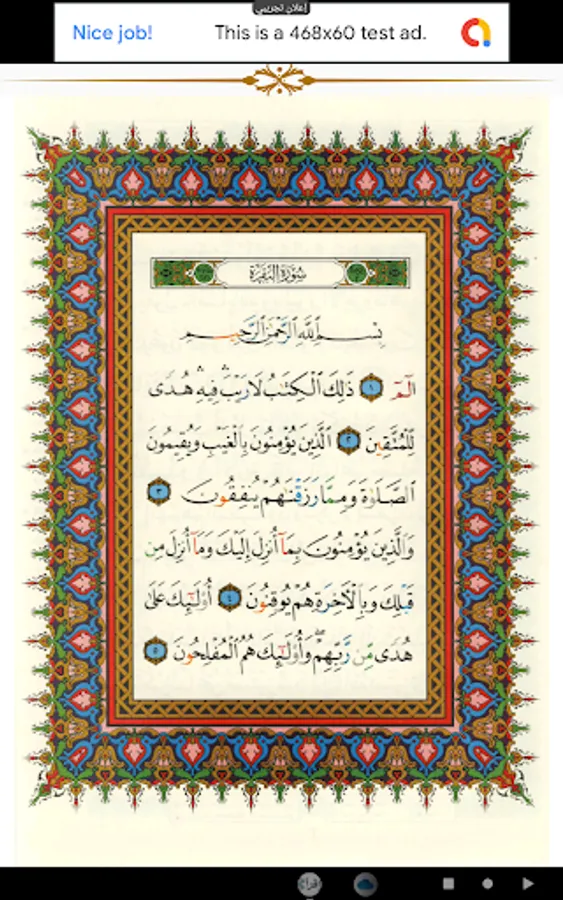 إعلان تجريبي
Nice job! This is a 468x60 test ad.
سُورَةُ البَقَرَةِ
بِسْمِ ٱللَّهِ ٱلرَّحْمَٰنِ ٱلرَّحِيمِ
الٓمٓ ١ ذَٰلِكَ ٱلْكِتَٰبُ لَا رَيْبَ ۛ فِيهِ ۛ هُدًى
لِّلْمُتَّقِينَ ٢ ٱلَّذِينَ يُؤْمِنُونَ بِٱلْغَيْبِ وَيُقِيمُونَ
ٱلصَّلَوٰةَ وَمِمَّا رَزَقْنَٰهُمْ يُنفِقُونَ ٣
وَٱلَّذِينَ يُؤْمِنُونَ بِمَآ أُنزِلَ إِلَيْكَ وَمَآ أُنزِلَ مِن
قَبْلِكَ وَبِٱلْءَاخِرَةِ هُمْ يُوقِنُونَ ٤ أُو۟لَٰٓئِكَ عَلَىٰ
هُدًى مِّن رَّبِّهِمْ ۖ وَأُو۟لَٰٓئِكَ هُمُ ٱلْمُفْلِحُونَ ٥